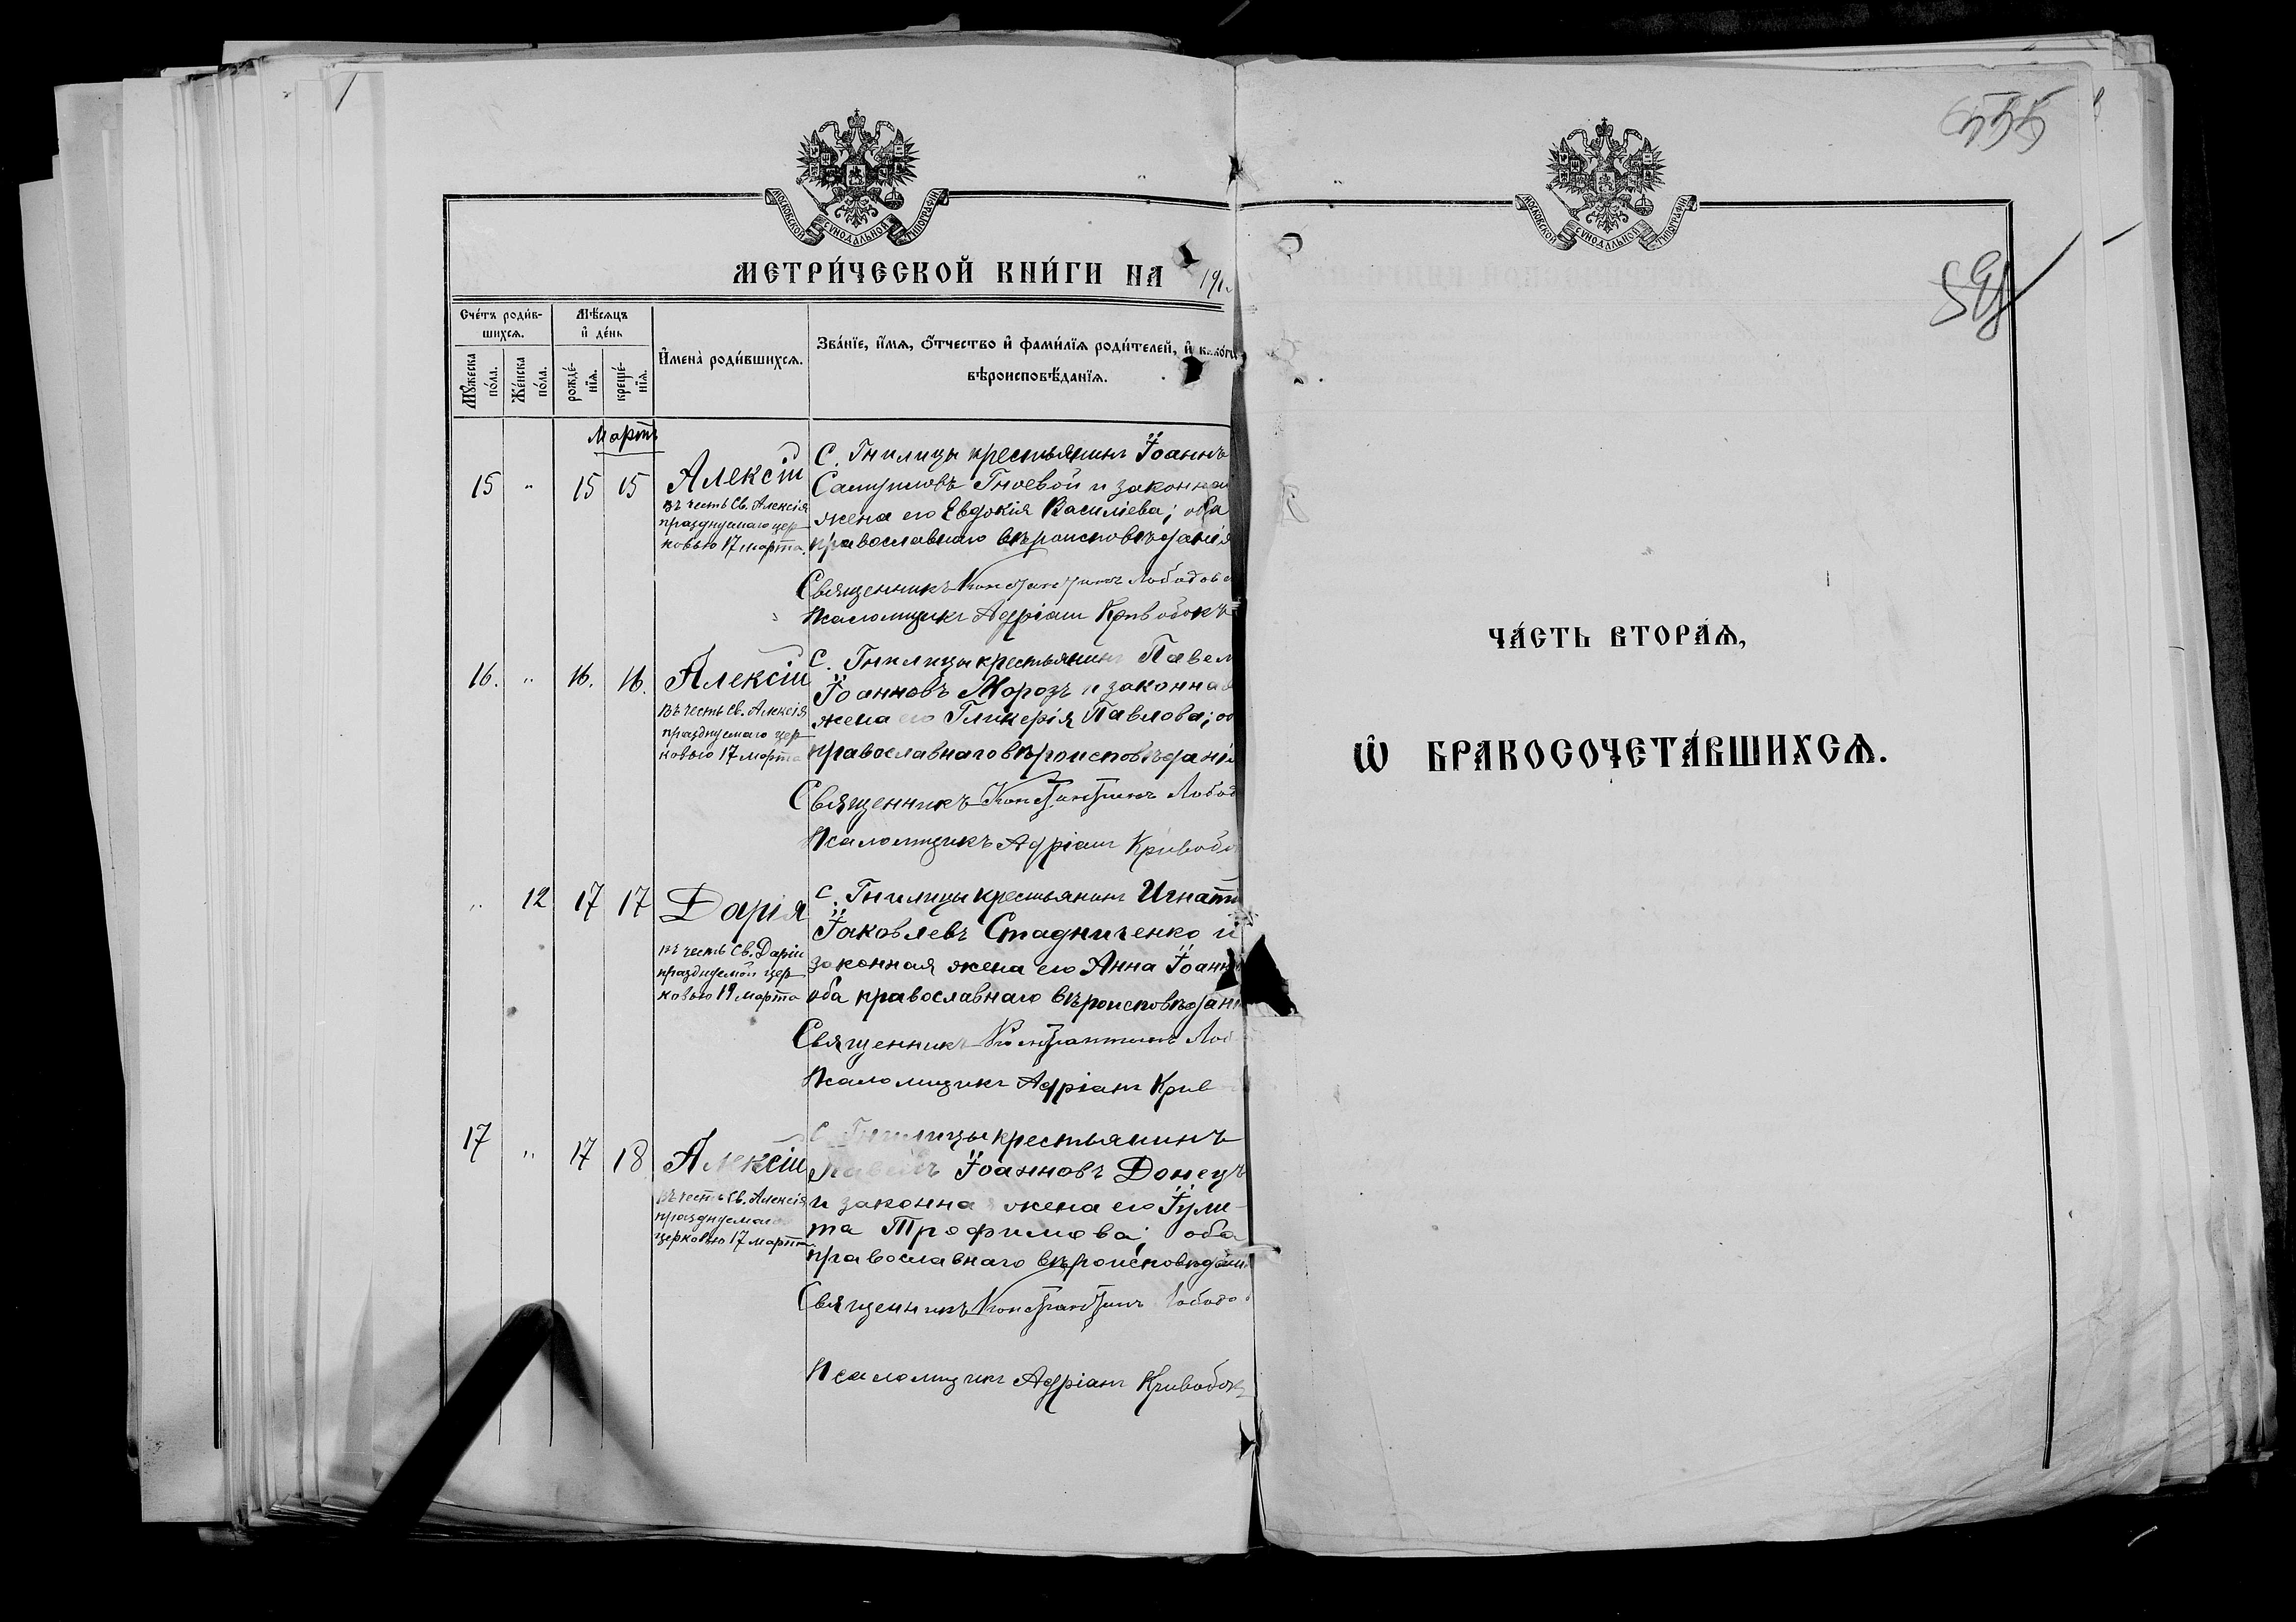 МОСКОВСКОЙ СУНОДАЛЬНОЙ ТИПОГРАФІИ
МЕТРИ́ЧЕСКОЙ КНИ́ГИ НА 191
Сче́тъ роди́в-
шихсѧ.
Мꙋ́жеска
по́ла.
Же́нска
по́ла.
Мѣ́сѧцъ
и҆ де́нь
рожде́-
нїѧ.
креще́-
нїѧ.
И҆мена̀ роди́вшихсѧ.
Зва́нїе, и҆́мѧ, ѻ҆́тчество и҆ фами́лїѧ роди́телей, и҆
вѣроисповѣ́данїѧ.
Мартъ
15 " 15 15 Алексій
въ честь Св. Алексія
празднуемаго цер-
ковью 17 марта.
С. Гнилицы крестьянинъ Іоаннъ
Самуиловъ Гноевой и законная
жена его Евдокія Василіева; оба
православнаго вѣроисповѣданія
Священникъ Константинъ
Псаломщикъ Адріанъ Кривобокъ
16. " 16. 16. Алексій
въ честь Св. Алексія
празднуемаго цер-
ковью 17 марта
С. Гнилицы крестьянинъ Павел
Іоанновъ Морозъ и законная
жена его Гликерія Павлова; об
православнаго вѣроисповѣданія
Священникъ Константинъ Лобод
Псаломщикъ Адріанъ Кривобо
" 12 17 17 Дарія
въ честь Св. Даріи
празднуемой цер-
ковью 19 марта
С. Гнилицы крестьянинъ Игнатій
Іаковлевъ Стадниченко и
законная жена его Анна Іоанн
оба православнаго вѣроисповѣдані
Священникъ Константинъ Лоб
Псаломщикъ Адріанъ Крив
17 " 17 18 Алексій
въ честь Св. Алексія
празднуемаго
церковью 17 марта
С. Гнилицы крестьянинъ
Павелъ Іоанновъ Донецъ
и законная жена его Іули-
та Трофимова; оба
православнаго вѣроисповѣдані
Священникъ Константинъ Лободо
Псаломщикъ Адріанъ Кривобокъ
МОСКОВСКОЙ СУНОДАЛЬНОЙ ТИПОГРАФІИ
ЧА́СТЬ ВТОРА́Ѧ,
Ѡ҆ БРАКОСОЧЕТА́ВШИХСѦ.